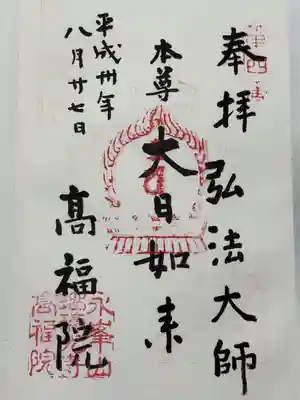 第四番
奉拝 弘法大師
本尊 大日如来
平成卅年
八月廿七日
高福院
永峯山
高福院